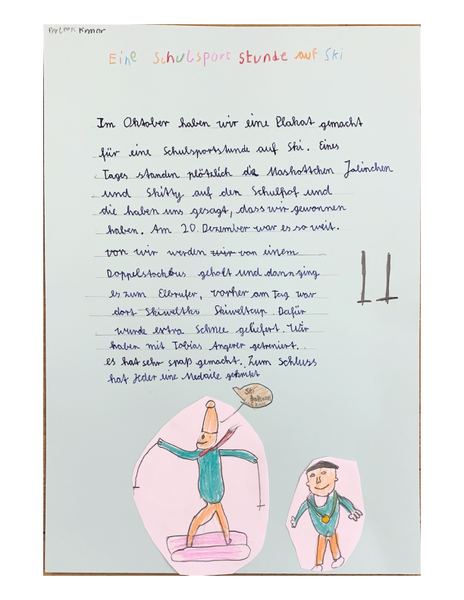 Eine Schulsport stunde auf Ski
Im Oktober haben wir eine Plakat gemacht
für eine Schulsportstunde auf Ski. Eines
Tages standen plötzlich die Maskottchen Jolinchen
und Skitty auf den Schulhof und
die haben uns gesagt, dass wir gewonnen
haben. Am 20. Dezember war es so weit.
von wir werden wir von einem
Doppelstockbus geholt und dann ging
es zum Elberufer, vorher am Tag war
dort Skiweltcup Dafür
wurde extra Schnee geliefert. Wir
haben mit Tobias Angerer getreniert.
es hat sehr spaß gemacht. Zum Schluss
hat Jeder eine Medaile gekriekt